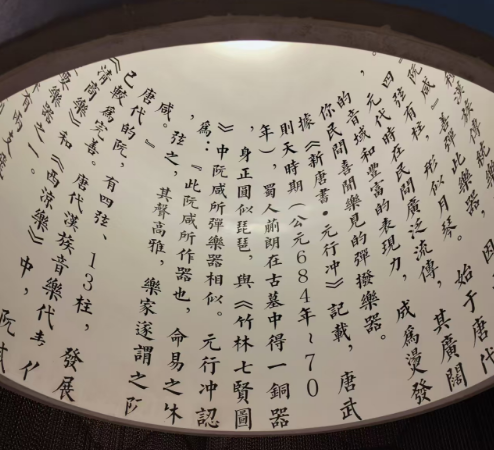 漢族傳統樂器,因
阮咸》善彈此樂器,
四弦有柱,形似月琴。始于唐代
元代時在民間廣泛流傳,其廣闊
的音域和豐富的表現力,成爲燙發
你民間喜聞樂見的彈撥樂器。
據《新唐書·元行冲》記載,唐武
則天時期(公元684年~70
年),蜀人蒯朗在古墓中得一銅器
,身正圓似琵琶,與《竹林七賢圖
》中阮咸所彈樂器相似。元行冲認
爲:『此阮咸所作器也,命易之以木
弦之,其聲高雅,樂家遂謂之阮
咸。』
唐代的阮,有四弦、13柱,發展
已較爲完善。唐代漢族音樂代表作
《清商樂》和《西涼樂》中,阮咸
樂器之一。